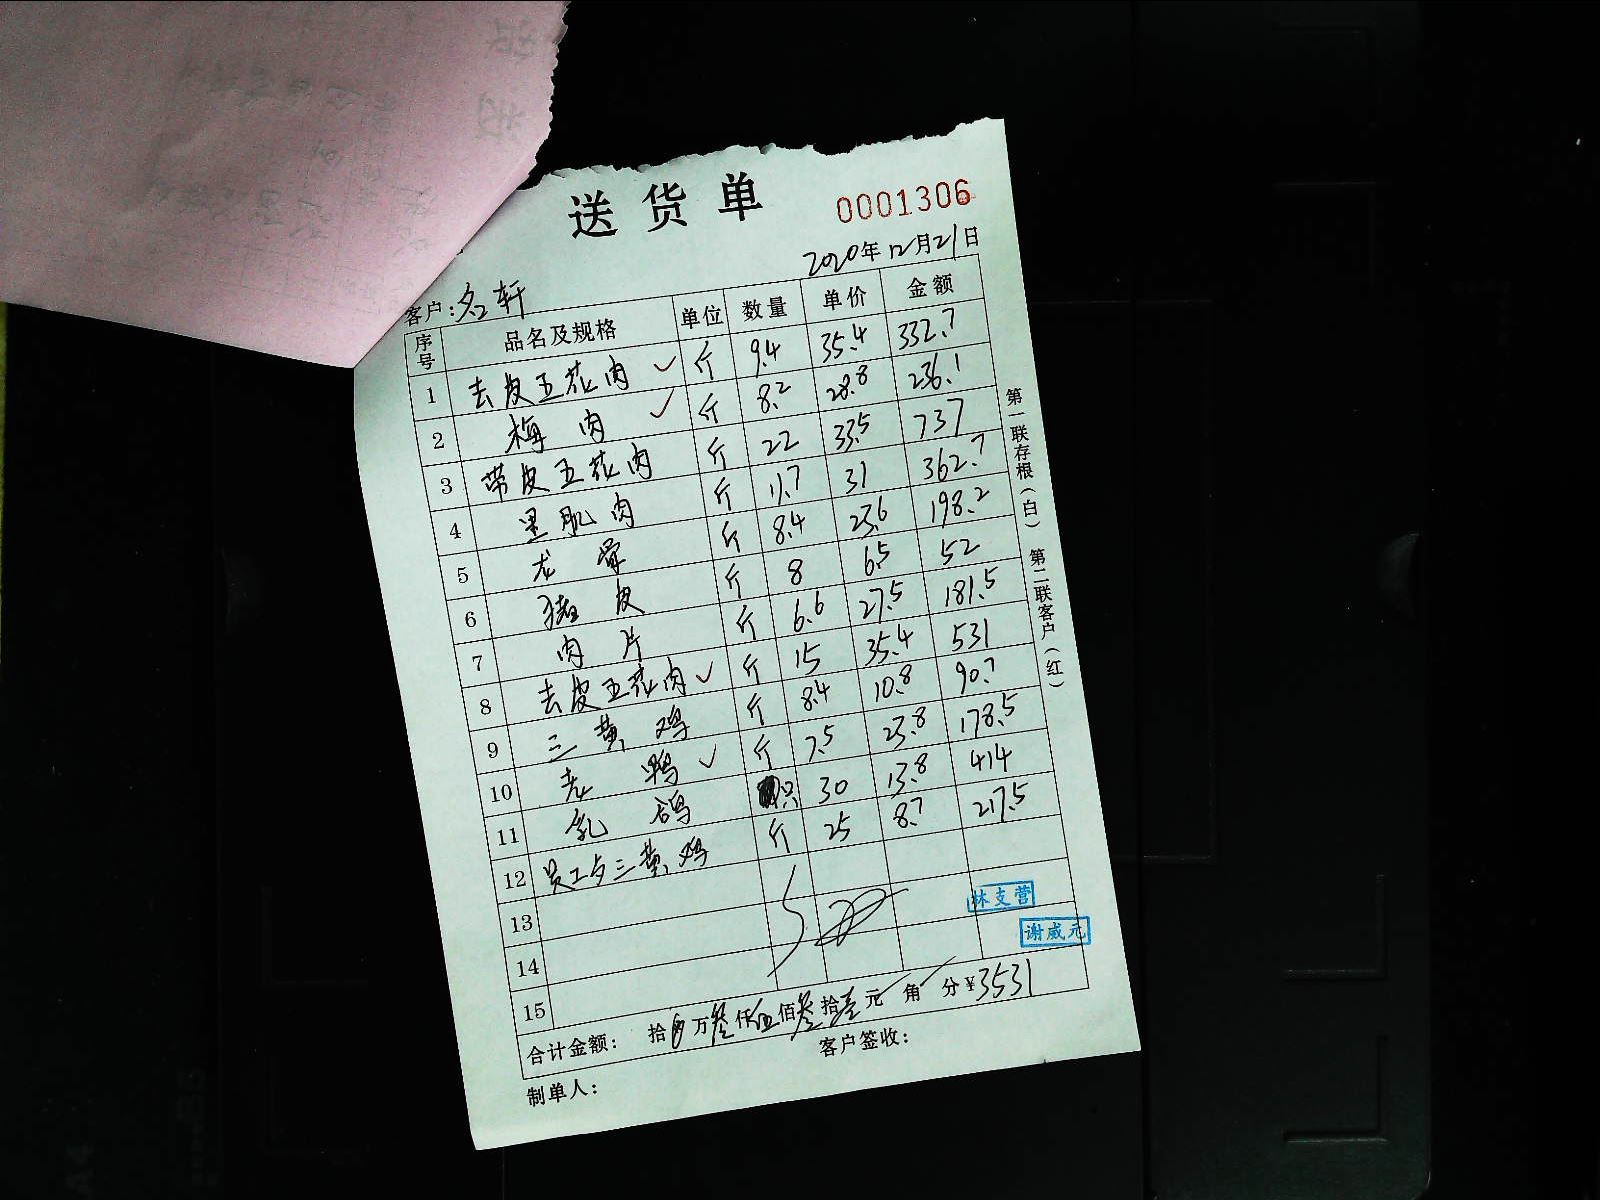 送货单 0001306
2020年12月21日
客户:名轩
序号 品名及规格 单位 数量 单价 金额
1 去皮五花肉 ✓ 斤 9.4 35.4 332.7
2 梅肉 ✓ 斤 8.2 28.8 236.1
3 带皮五花肉 斤 22 33.5 737
4 里肌肉 斤 11.7 31 362.7
5 龙骨 斤 8.4 23.6 198.2
6 猪皮 斤 8 6.5 52
7 肉片 斤 6.6 27.5 181.5
8 去皮五花肉 ✓ 斤 15 35.4 531
9 三黄鸡 斤 8.4 10.8 90.7
10 老鸭 ✓ 斤 7.5 23.8 178.5
11 乳鸽 只 30 13.8 414
12 员工与三黄鸡 斤 25 8.7 217.5
13
14
15
林支营
谢威元
合计金额: 拾 万叁仟伍佰叁拾壹元 角 分¥3531
制单人: 客户签收:
第一联存根(白) 第二联客户(红)